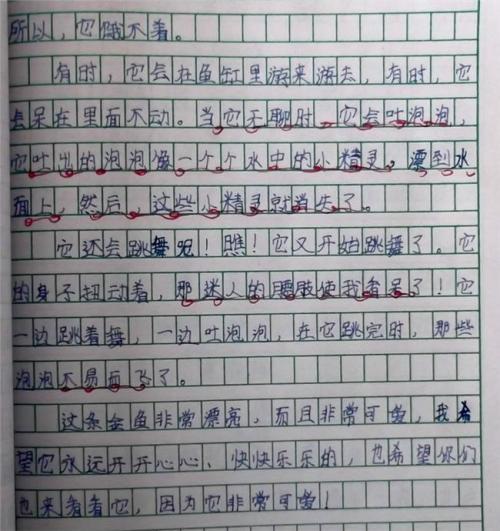 所以，它饿不着。
有时，它会在鱼缸里游来游去，有时，它
会呆在里面不动。当它无聊时，它会吐泡泡，
它吐出的泡泡像一个个水中的小精灵，漂到水
面上，然后，这些小精灵就消失了。
它还会跳舞呢！瞧！它又开始跳舞了。它
的身子扭动着，那迷人的腰肢使我看呆了！它
一边跳着舞，一边吐泡泡，在它跳完时，那些
泡泡不易而飞了。
这条金鱼非常漂亮，而且非常可爱，我希
望它永远开开心心、快快乐乐的，也希望你们
也来看看它，因为它非常可爱！